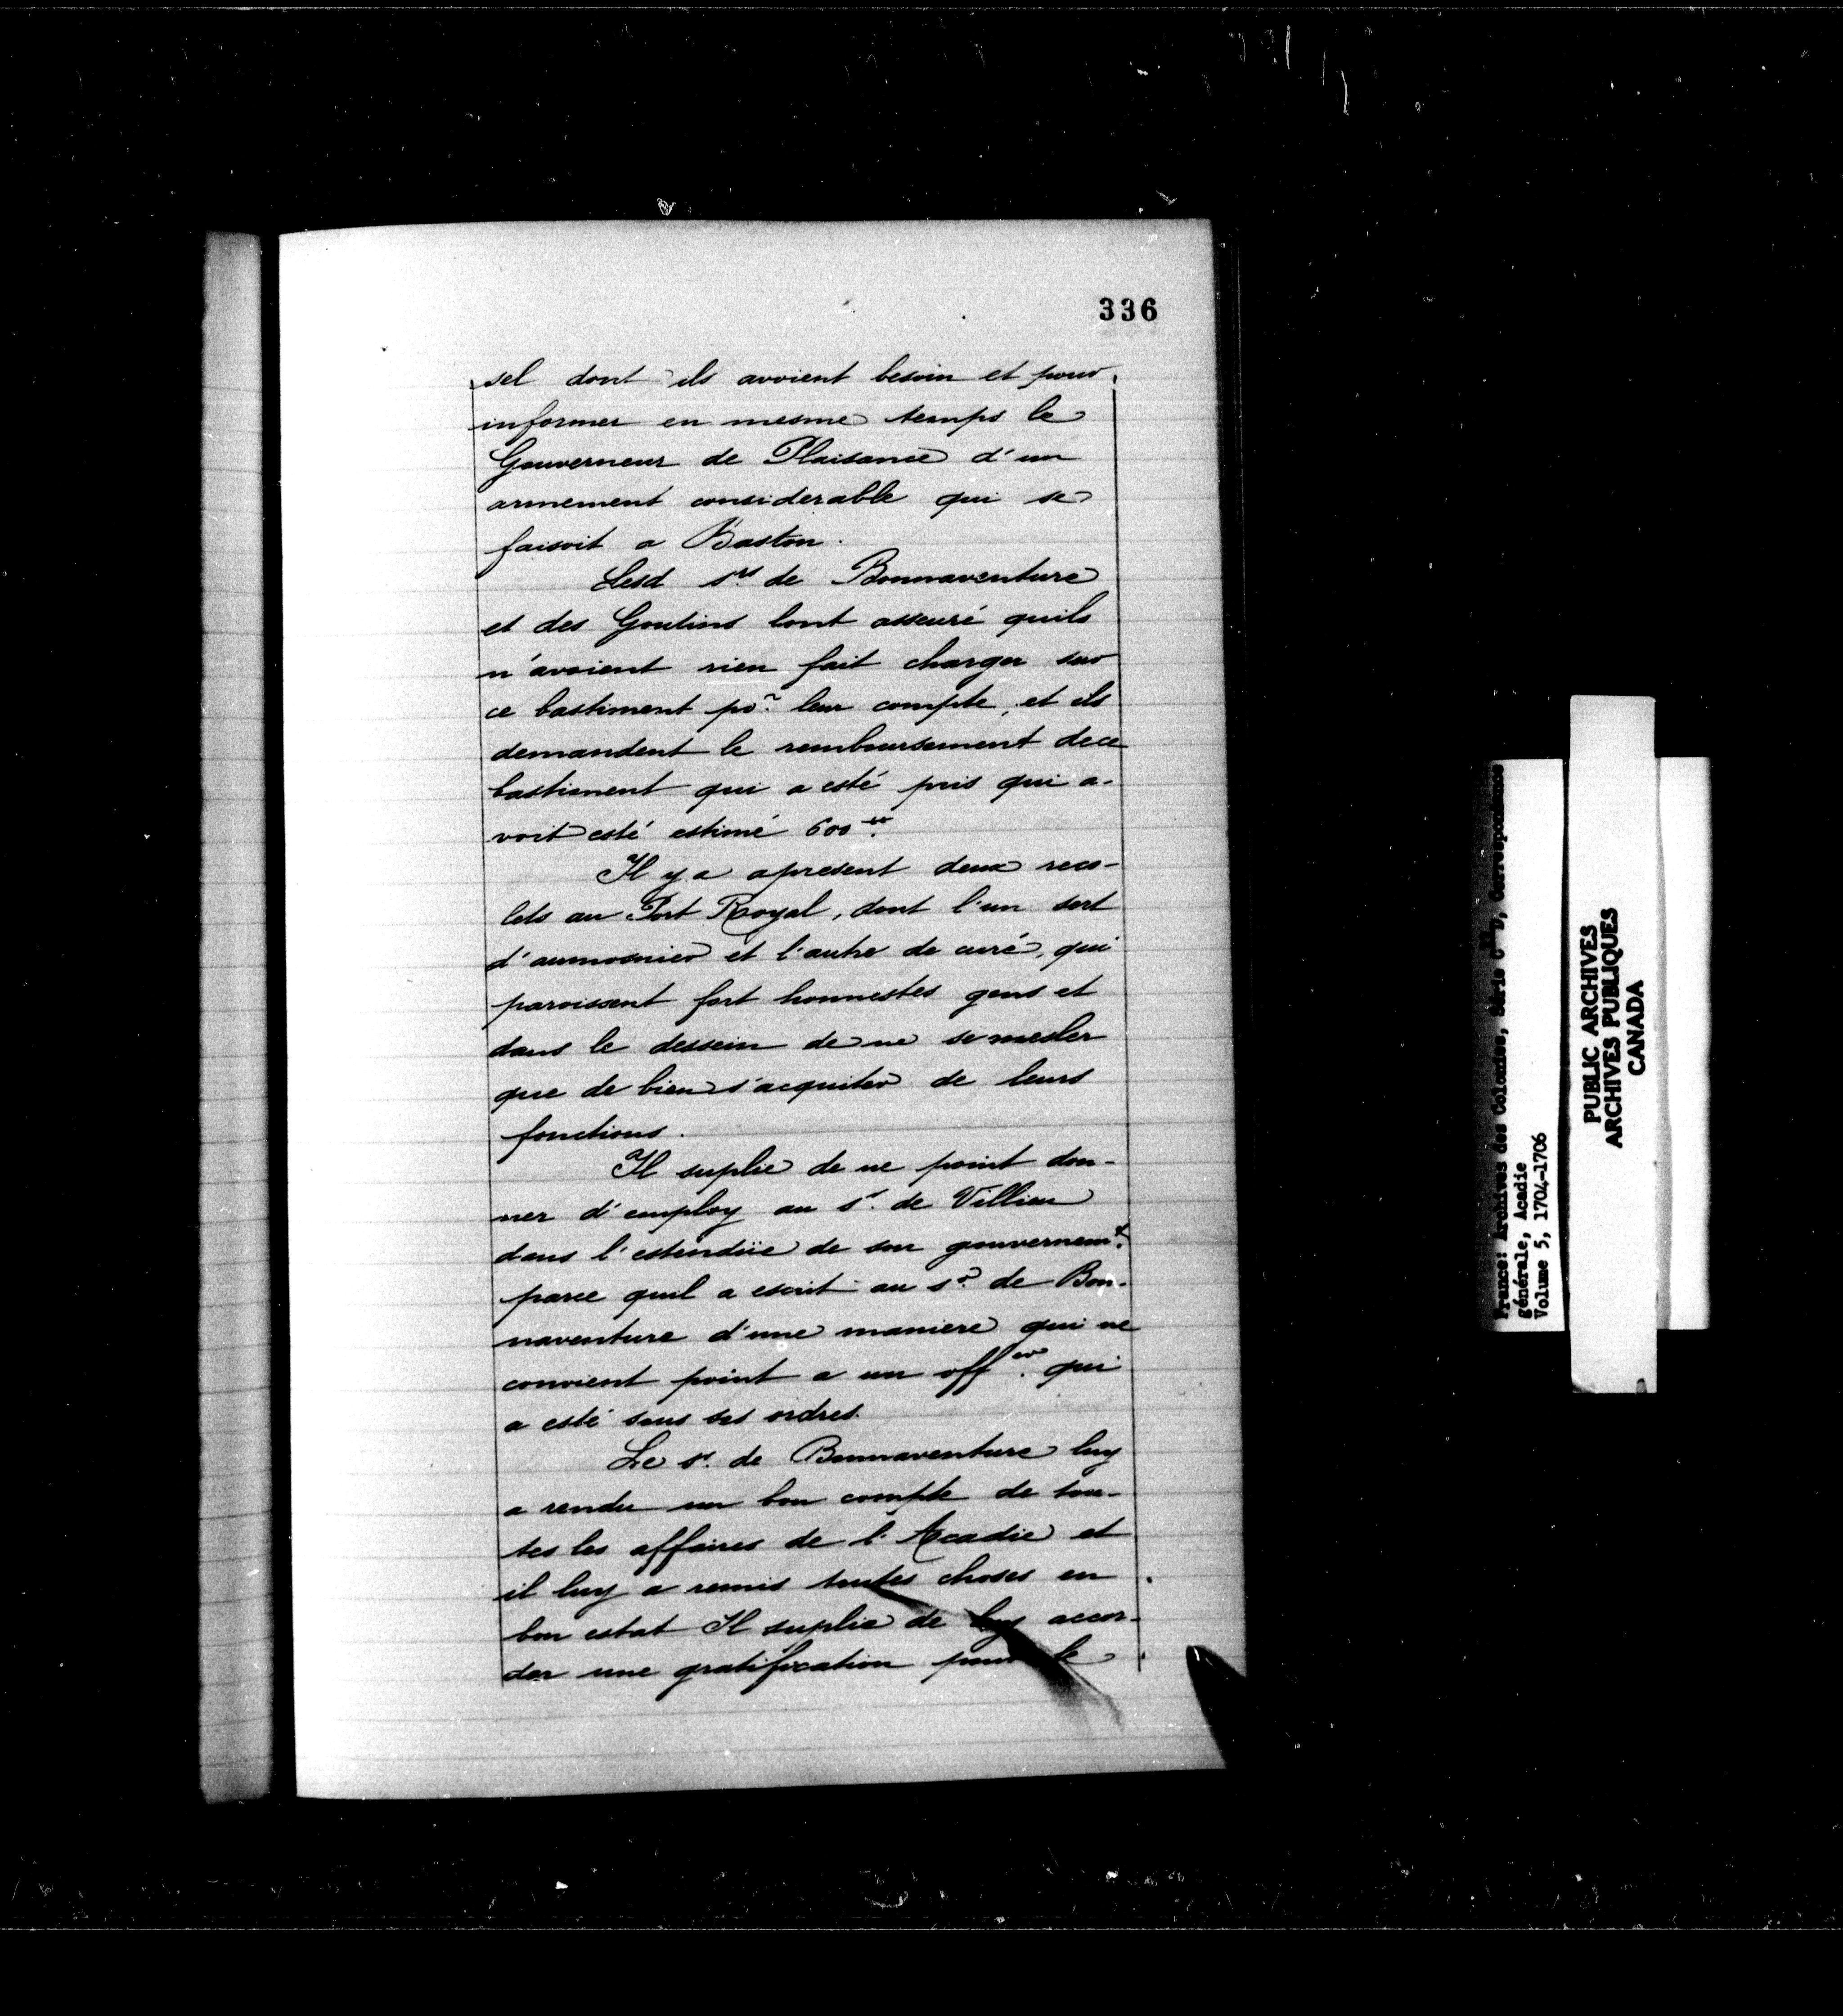 336
sel dont ils avoient besoin et pour
informer en mesme temps le
Gouverneur de Plaisance d'un
armement considerable qui se
faisoit a Baston.
Lesd srs de Bonnaventure
et des Goutins lont asseuré quils
n'avoient rien fait charger sur
ce bastiment por leur compte, et ils
demandent le remboursement de ce
bastiment qui a esté pris qui a-
voit esté estimé 600tt.
Il y a apresent deux reco-
lets au Port Royal, dont l'un sert
d'aumosnier et l'autre de curé, qui
paroissent fort honnestes gens et
dans le dessein de ne se mesler
que de bien s'acquiter de leurs
fonctions.
Il suplie de ne point don-
ner d'employ au sr. de Villieu
dans l'estendüe de son gouvernemt.
parce quil a escrit au sr. de Bon-
naventure d'une maniere qui ne
convient point a un offer. qui
a esté sous ses ordres.
Le sr. de Bonnaventure luy
a rendu un bon compte de tou-
tes les affaires de l'Acadie et
il luy a remis toutes choses en
bon estat Il suplie de luy accor-
der une gratification pour le
France: Archives des Colonies, Série C11D, Correspondance
générale, Acadie
Volume 5, 1704-1706
PUBLIC ARCHIVES
ARCHIVES PUBLIQUES
CANADA